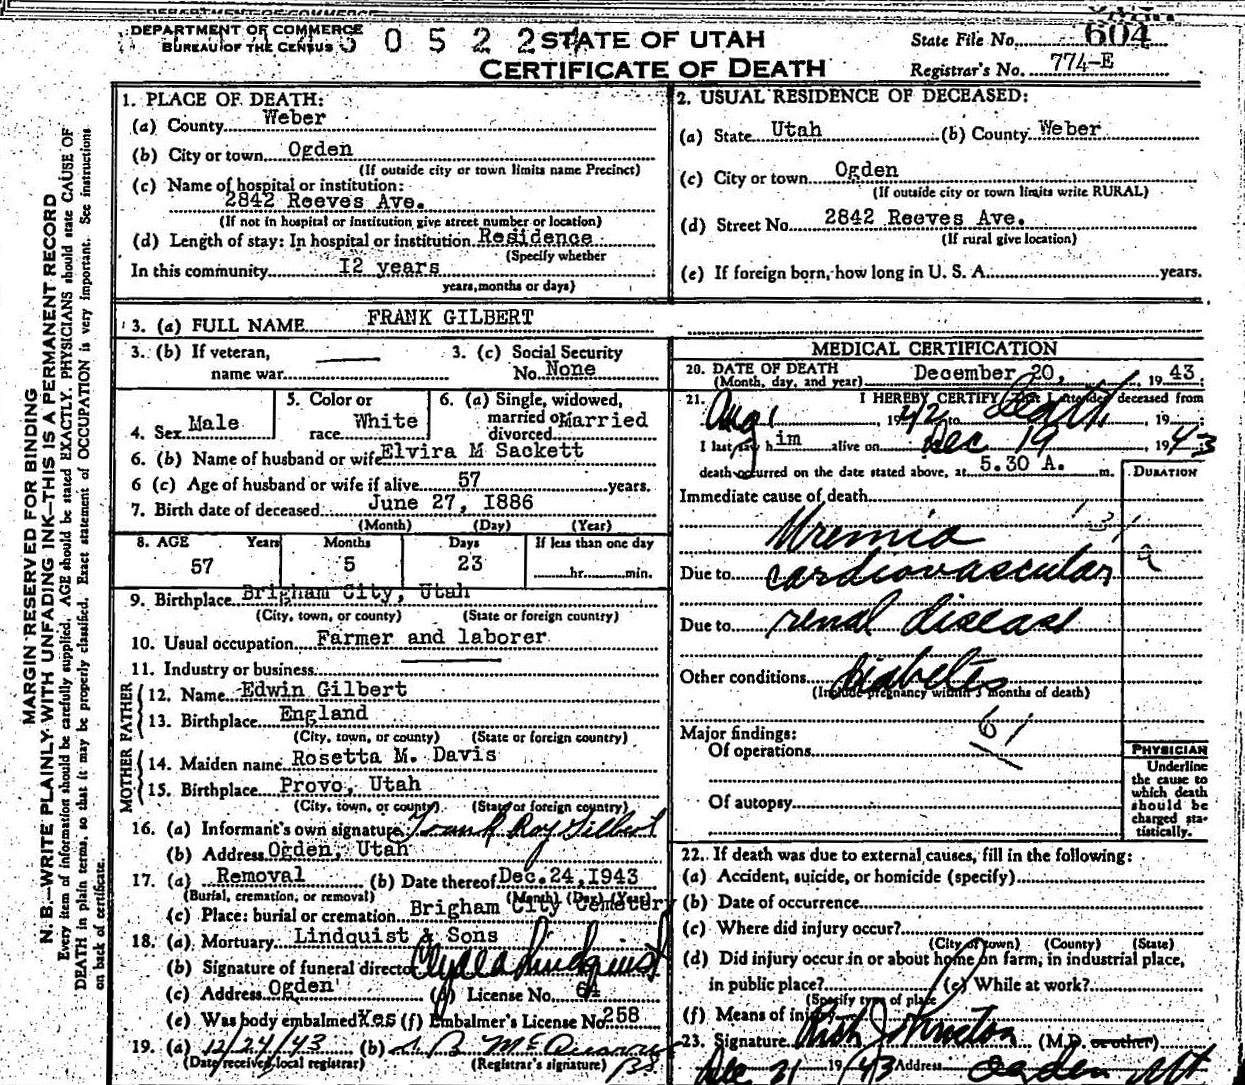 DEPARTMENT OF COMMERCE
BUREAU OF THE CENSUS
0 5 2 2
STATE OF UTAH
CERTIFICATE OF DEATH
State File No. 604
Registrar's No. 774-E
MARGIN RESERVED FOR BINDING
N. B.—WRITE PLAINLY WITH UNFADING INK—THIS IS A PERMANENT RECORD
Every item of information should be carefully supplied. AGE should be stated EXACTLY. PHYSICIANS should state CAUSE OF
DEATH in plain terms, so that it may be properly classified. Exact statement of OCCUPATION is very important. See instructions
on back of certificate.
1. PLACE OF DEATH:
(a) County Weber
(b) City or town Ogden
(If outside city or town limits name Precinct)
(c) Name of hospital or institution:
2842 Reeves Ave.
(If not in hospital or institution give street number or location)
(d) Length of stay: In hospital or institution Residence
(Specify whether
In this community 12 years
years, months or days)
2. USUAL RESIDENCE OF DECEASED:
(a) State Utah (b) County Weber
(c) City or town Ogden
(If outside city or town limits write RURAL)
(d) Street No. 2842 Reeves Ave.
(If rural give location)
(e) If foreign born, how long in U. S. A. years.
3. (a) FULL NAME FRANK GILBERT
3. (b) If veteran, name war
3. (c) Social Security No. None
4. Sex Male
5. Color or race White
6. (a) Single, widowed, married or divorced Married
6. (b) Name of husband or wife Elvira M Sackett
6 (c) Age of husband or wife if alive 57 years.
7. Birth date of deceased June 27, 1886
(Month) (Day) (Year)
8. AGE Years Months Days If less than one day
57 5 23 hr. min.
9. Birthplace Brigham City, Utah
(City, town, or county) (State or foreign country)
10. Usual occupation Farmer and laborer
11. Industry or business
FATHER
12. Name Edwin Gilbert
13. Birthplace England
(City, town, or county) (State or foreign country)
MOTHER
14. Maiden name Rosetta M. Davis
15. Birthplace Provo, Utah
(City, town, or county) (State or foreign country)
16. (a) Informant's own signature Frank Roy Gilbert
(b) Address Ogden, Utah
17. (a) Removal (b) Date thereof Dec. 24, 1943
(Burial, cremation, or removal) (Month) (Day) (Year)
(c) Place: burial or cremation Brigham City Cemetery
18. (a) Mortuary Lindquist & Sons
(b) Signature of funeral director Clyde Lindquist
(c) Address Ogden (d) License No. 64
(e) Was body embalmed Yes (f) Embalmer's License No. 258
19. (a) 12/24/43 (b)
(Date received local registrar) (Registrar's signature)
MEDICAL CERTIFICATION
20. DATE OF DEATH
(Month, day, and year) December 20, 1943
21. I HEREBY CERTIFY That I attended deceased from
Aug 1, 1942 to Death, 19
I last saw him alive on Dec 19 1943
death occurred on the date stated above, at 5.30 A. m.
DURATION
Immediate cause of death
Uremia
Due to cardiovascular
Due to renal disease
Other conditions Diabetes
(Include pregnancy within 3 months of death)
61
Major findings:
Of operations
Of autopsy
PHYSICIAN
Underline
the cause to
which death
should be
charged sta-
tistically.
22. If death was due to external causes, fill in the following:
(a) Accident, suicide, or homicide (specify)
(b) Date of occurrence
(c) Where did injury occur?
(City or town) (County) (State)
(d) Did injury occur in or about home, on farm, in industrial place,
in public place? (e) While at work?
(Specify type of place)
(f) Means of injury
23. Signature Rich Johnston (M.D. or other)
Dec 21 1943 Address Ogden Ut